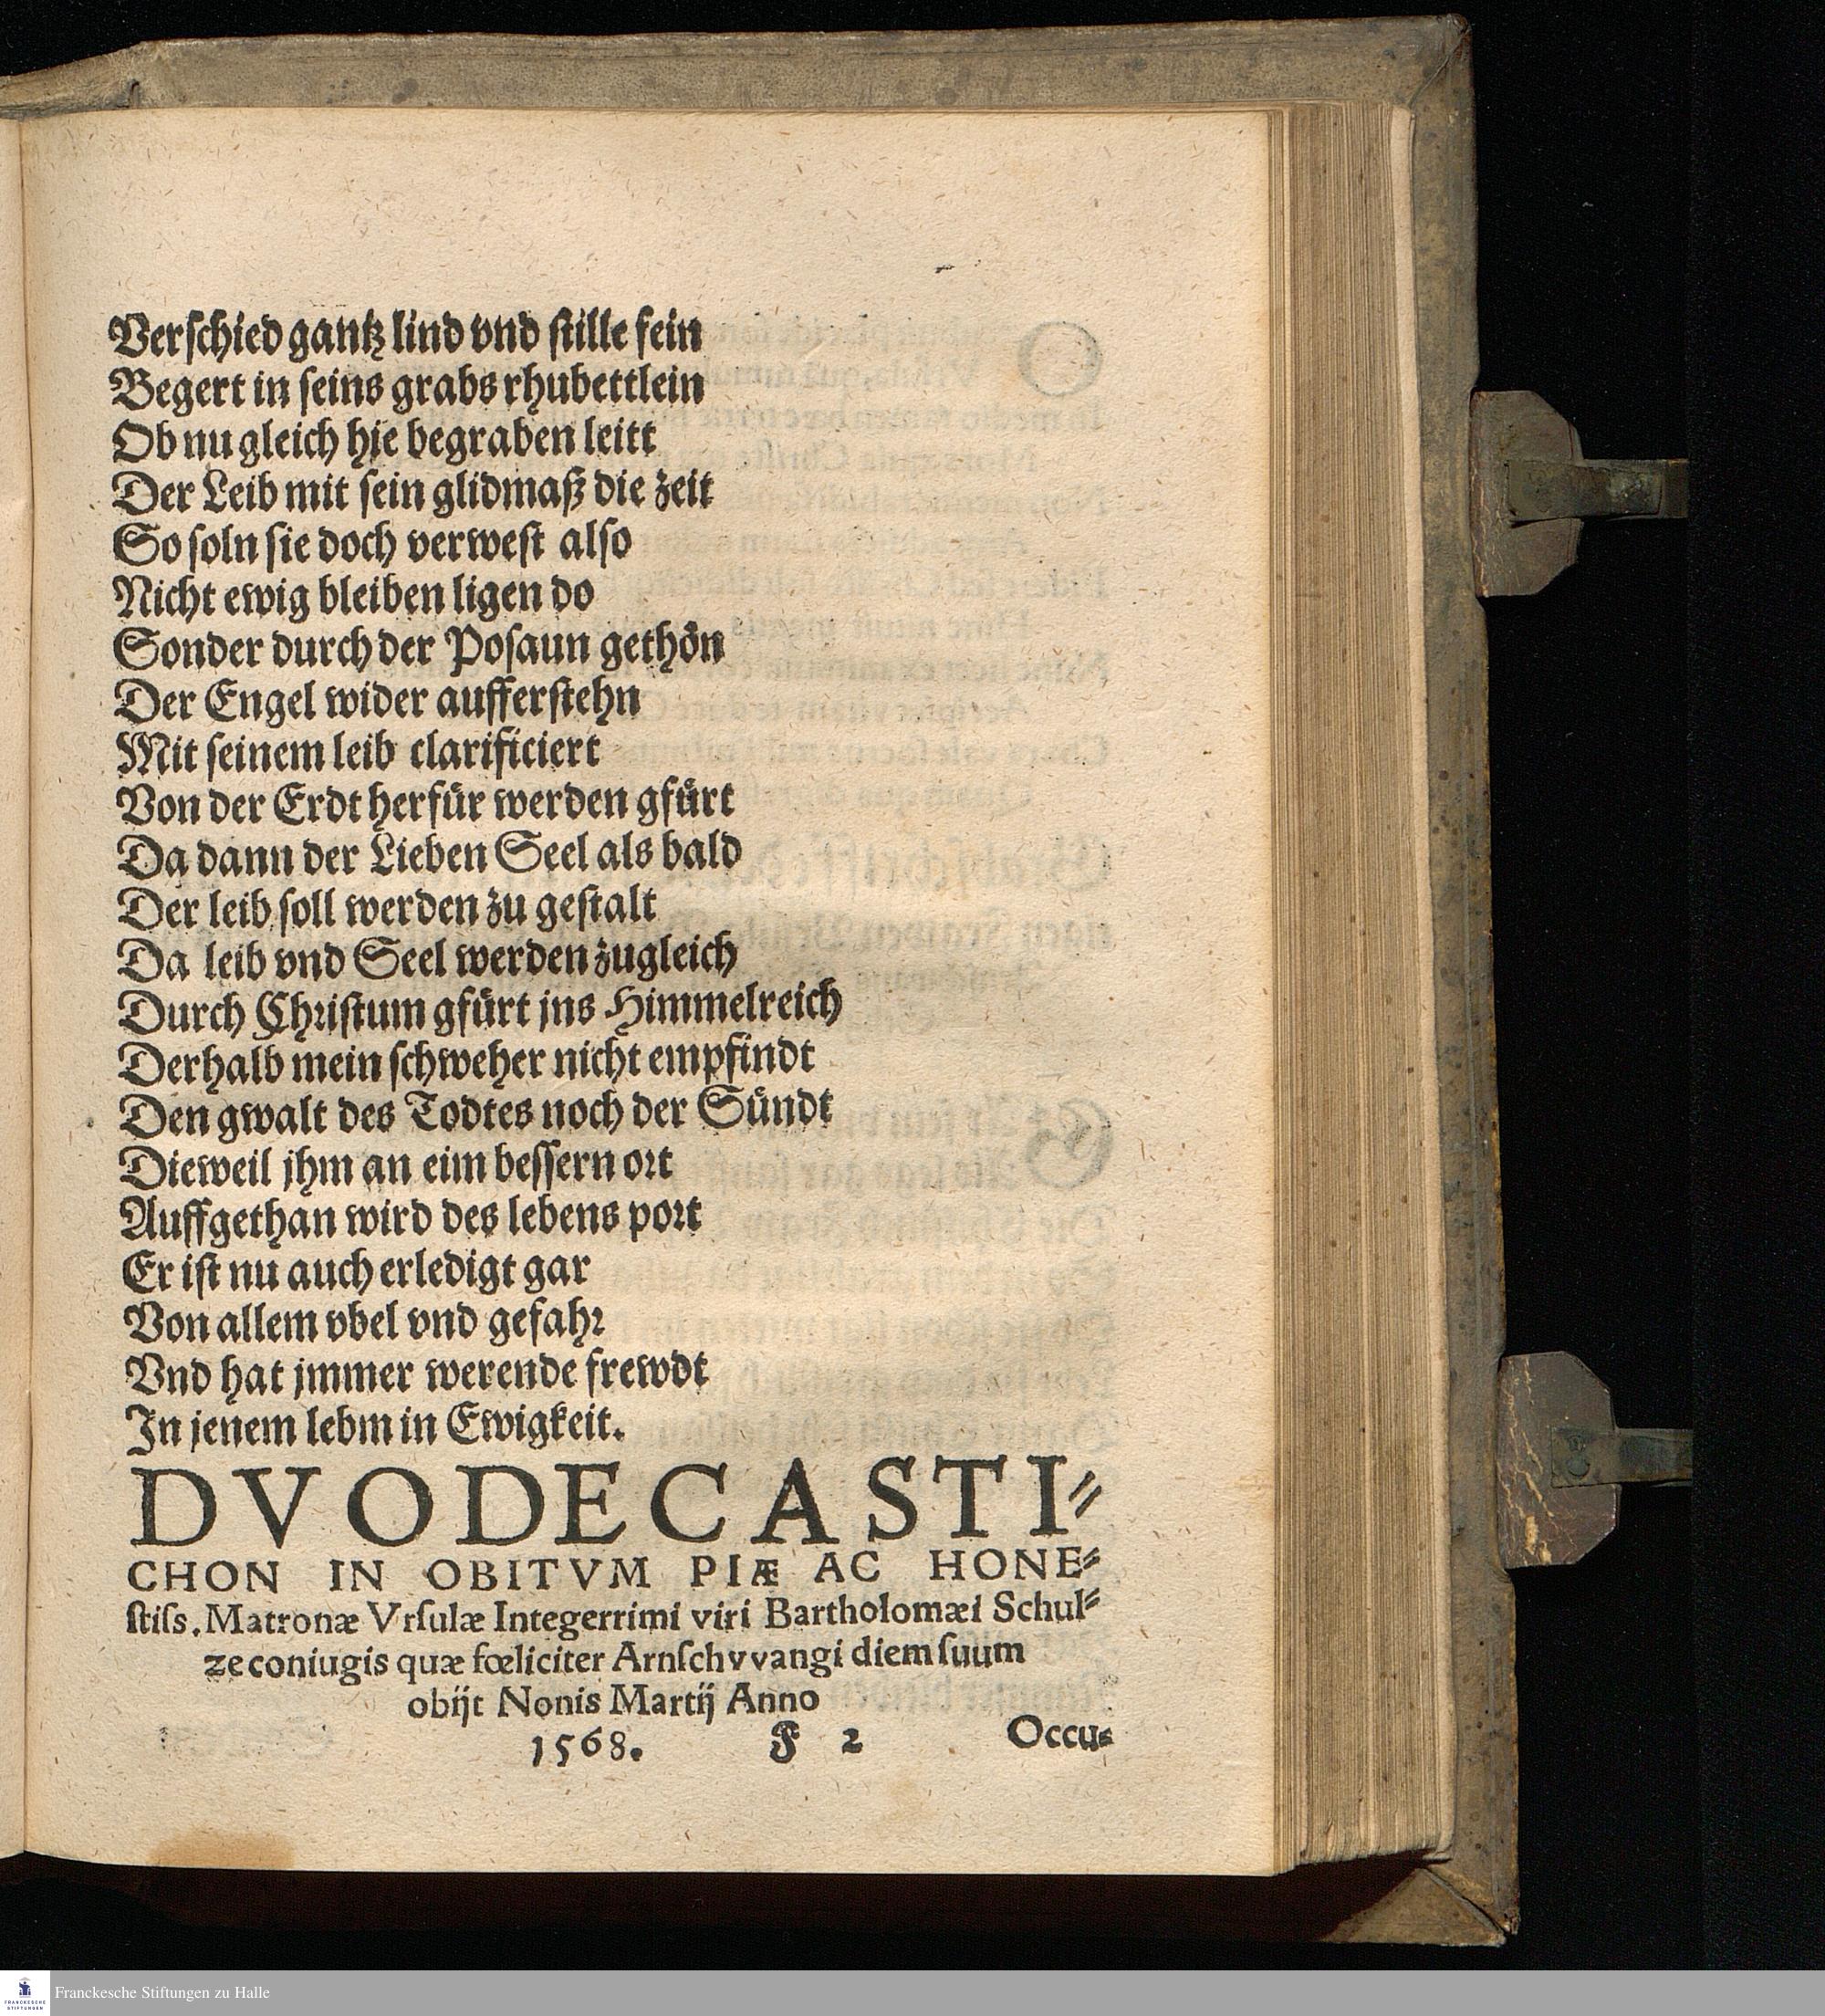 Verſchied gantz lind vnd ſtille fein
Begert in ſeins grabs rhubettlein
Ob nu gleich hie begraben leitt
Der Leib mit ſein glidmaß die zeit
So ſoln ſie doch verweſt alſo
Nicht ewig bleiben ligen do
Sonder durch der Poſaun gethön
Der Engel wider aufferſtehn
Mit ſeinem leib clarificiert
Von der Erdt herfür werden gfürt
Da dann der Lieben Seel als bald
Der leib ſoll werden zu geſtalt
Da leib vnd Seel werden zugleich
Durch Chriſtum gfürt jns Himmelreich
Derhalb mein ſchweher nicht empfindt
Den gwalt des Todtes noch der Sündt
Dieweil jhm an eim beſſern ort
Auffgethan wird des lebens port
Er iſt nu auch erledigt gar
Von allem vbel vnd gefahr
Vnd hat jmmer werende frewdt
In jenem lebm in Ewigkeit.
DVODECASTI⸗
CHON IN OBITVM PIÆ AC HONE⸗
ſtiſs. Matronæ Vrſulæ Integerrimi viri Bartholomæi Schul⸗
ze coniugis quæ fœliciter Arnſchvvangi diem ſuum
obijt Nonis Martij Anno
1568. F 2 Occu⸗
FRANCKESCHE STIFTUNGEN
Franckesche Stiftungen zu Halle